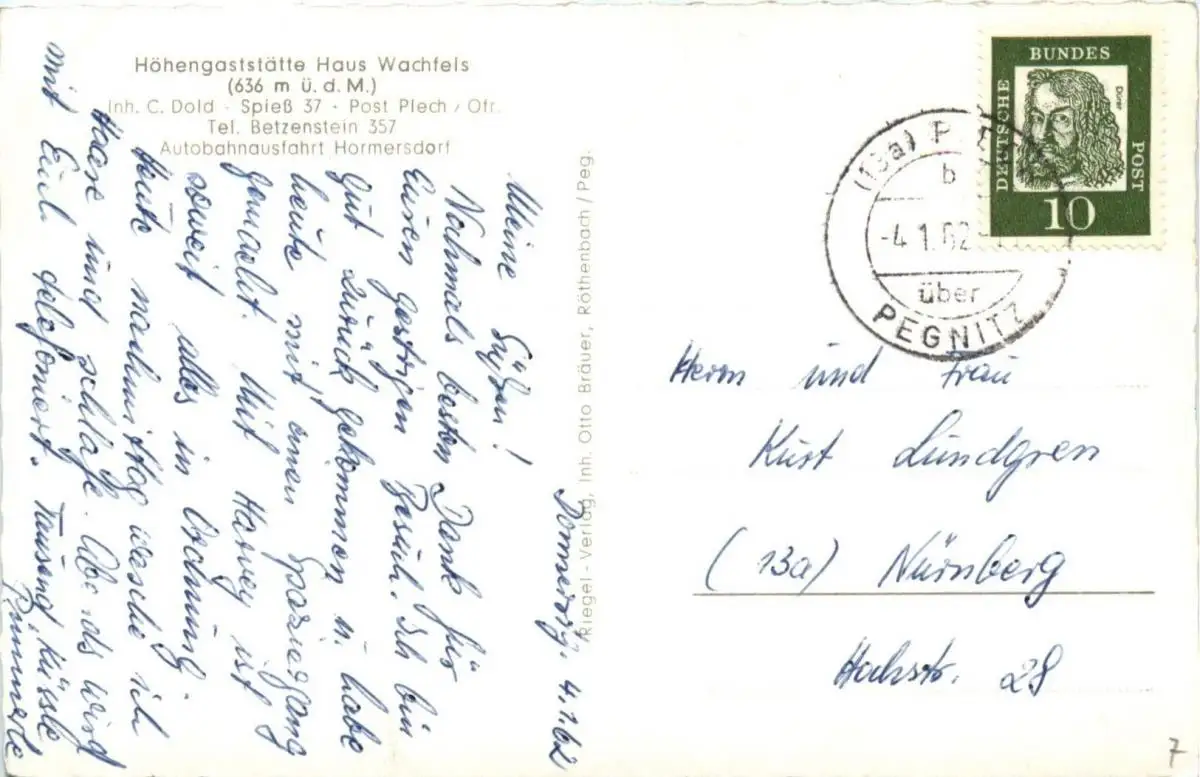 Höhengaststätte Haus Wachfels
(636 m ü. d. M.)
Inh. C. Dold - Spieß 37 - Post Plech / Ofr.
Tel. Betzenstein 357
Autobahnausfahrt Hormersdorf
Donnerstg. 4.1.62
Meine Süßen!
Nochmals besten Dank für
Euren gestrigen Besuch. Ich bin
gut zurück gekommen u. habe
heute mit einen Spaziergang
gemacht. Mit Harvey ist
soweit alles in Ordnung.
Heute nachmittag wasche ich
Haare und schlafe. Abends wird
mit Euch telefoniert. Tausend Küssle
Riegel - Verlag, Inh. Otto Bräuer, Röthenbach / Peg.
DEUTSCHE
BUNDES
POST
Dürer
10
(13a) P
b
-4.1.62
über
PEGNITZ
Herrn und Frau
Kurt Lundgren
(13a) Nürnberg
Hochstr. 28
7